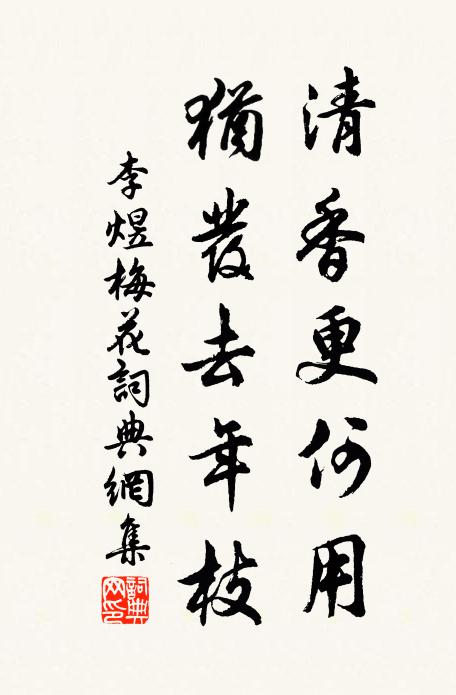 清香更何用
猶發去年枝
李煜梅花詞典網集
詞典網印